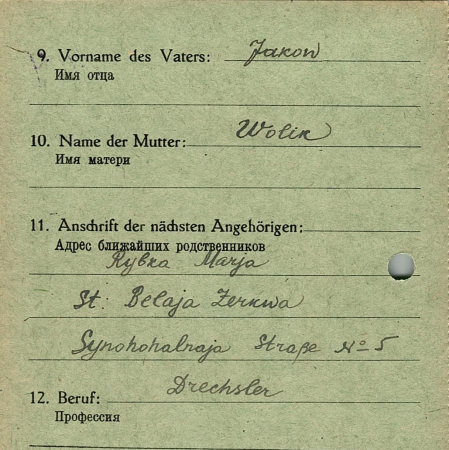 9. Vorname des Vaters: Jakow
Имя отца
10. Name der Mutter: Wolik
Имя матери
11. Anschrift der nächsten Angehörigen:
Адрес ближайших родственников
Rybka Marja
St. Belaja Zerkwa
Straße No 5
12. Beruf: Drechsler
Профессия